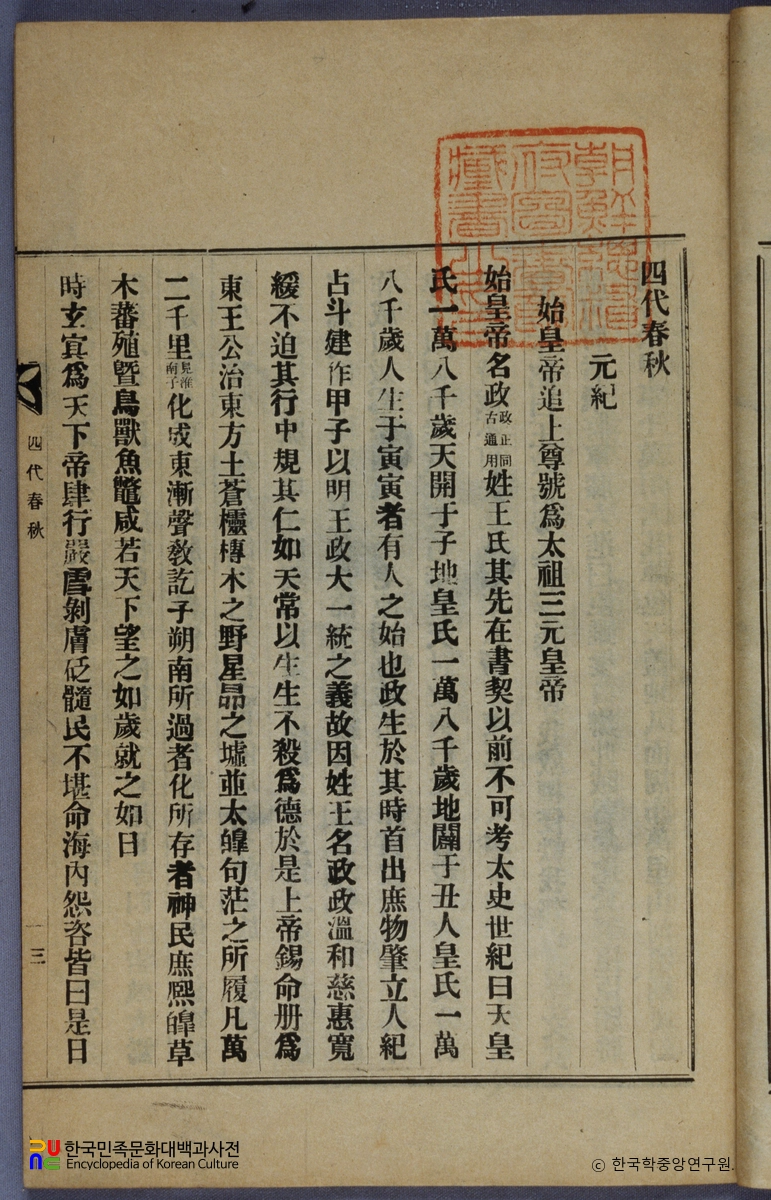 四代春秋
元紀
始皇帝追上尊號爲太祖三元皇帝
始皇帝名政政正同古通用姓王氏其先在書契以前不可考太史世紀曰天皇
氏一萬八千歲天開于子地皇氏一萬八千歲地闢于丑人皇氏一萬
八千歲人生于寅寅者有人之始也政生於其時首出庶物肇立人紀
占斗建作甲子以明王政大一統之義故因姓王名政政溫和慈惠寬
緩不迫其行中規其仁如天常以生生不殺爲德於是上帝錫命册爲
東王公治東方土蒼櫺榑木之野星昴之墟並太皥句茫之所履凡萬
二千里見淮南子化成東漸聲敎訖于朔南所過者化所存者神民庶熙皥草
木蕃殖曁鳥獸魚鼈咸若天下望之如歲就之如日
時玄冥爲天下帝肆行嚴雪剝膚砭髓民不堪命海內怨咨皆曰是日
四代春秋
三
朝鮮總督府圖書館藏書之印
한국민족문화대백과사전
Encyclopedia of Korean Culture
© 한국학중앙연구원.